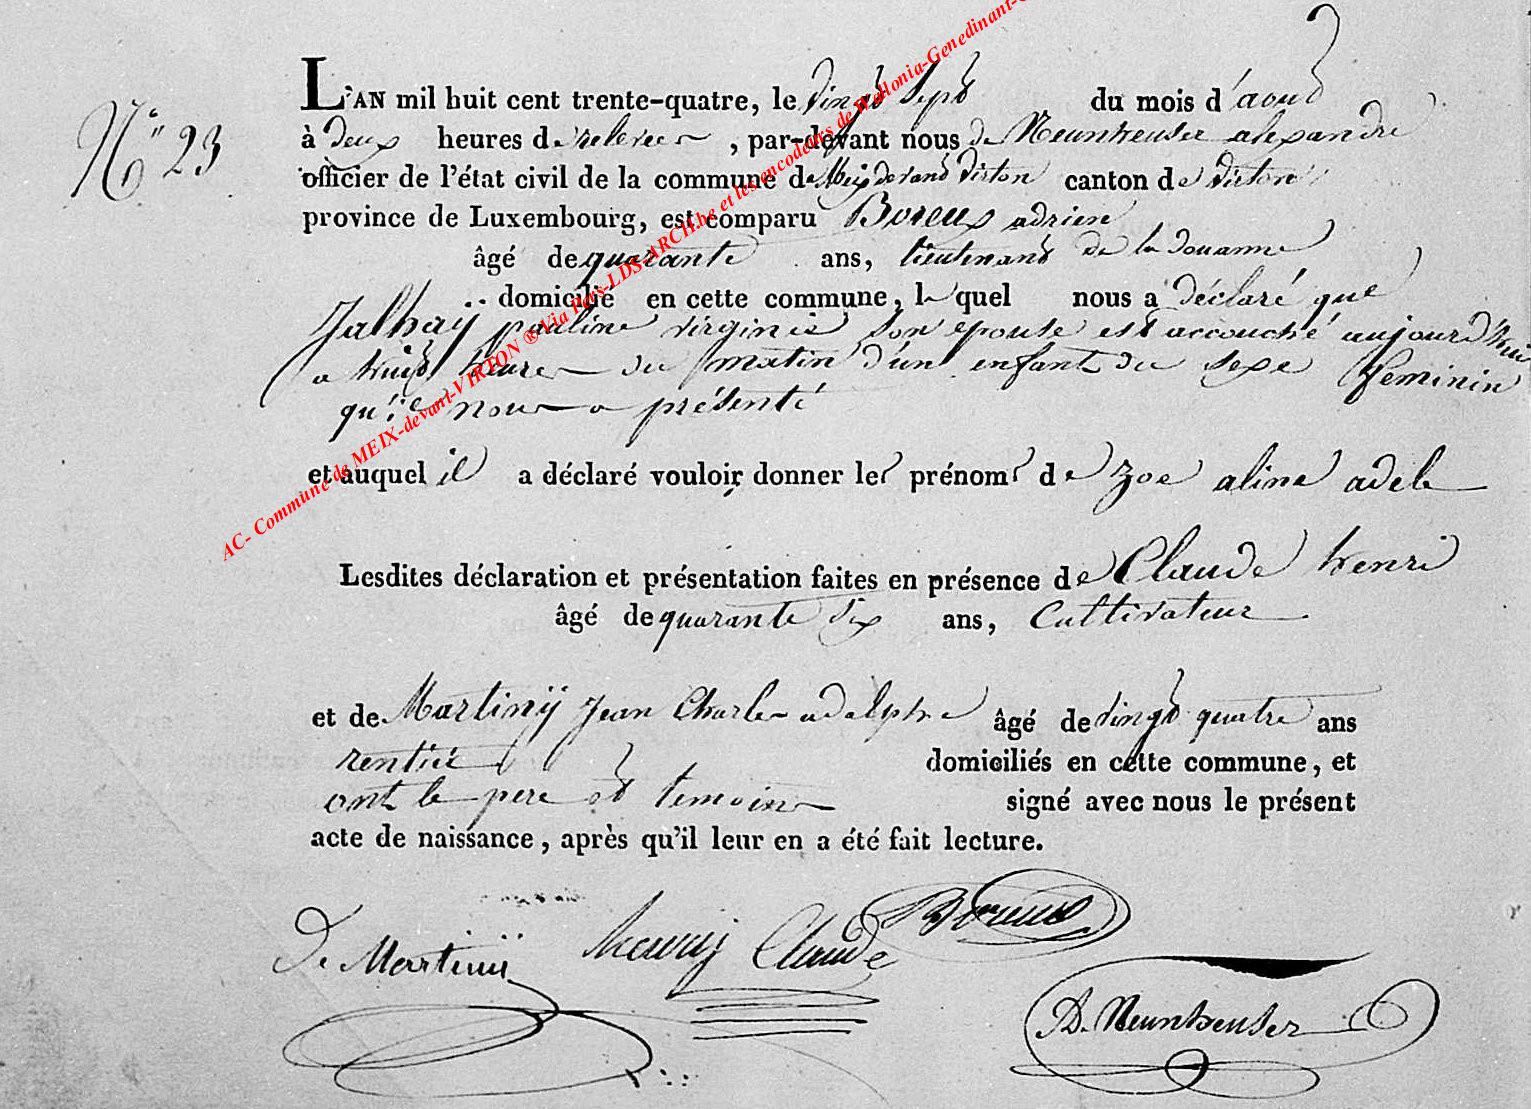 AC- Commune de MEIX-devant-VIRTON ® Via Pers-LDS-ARCH.be et les encodeurs de Wallonia-Genedinant-
N° 23
L'AN mil huit cent trente-quatre, le vingt sept du mois d'aout
à deux heures de relevee, par-devant nous de Neunheuser alexandre
officier de l'état civil de la commune de Meix devant Virton canton de Virton
province de Luxembourg, est comparu Boreux adrien
âgé de quarante ans, lieutenant de la douanne
domicilié en cette commune, le quel nous a déclaré que
Jalhaÿ pauline virginie son epouse est accouché aujourd'hui
a huit heures du matin d'un enfant du sexe feminin
qu'il nous a présenté
et auquel il a déclaré vouloir donner les prénoms de zoe aline adele
Lesdites déclaration et présentation faites en présence de Claude henri
âgé de quarante six ans, Cultivateur
et de Martinÿ Jean Charles adolphe âgé de vingt quatre ans
rentier domiciliés en cette commune, et
ont le pere et temoins signé avec nous le présent
acte de naissance, après qu'il leur en a été fait lecture.
De Martinÿ henrij Claude Boreux
A. Neunheuser